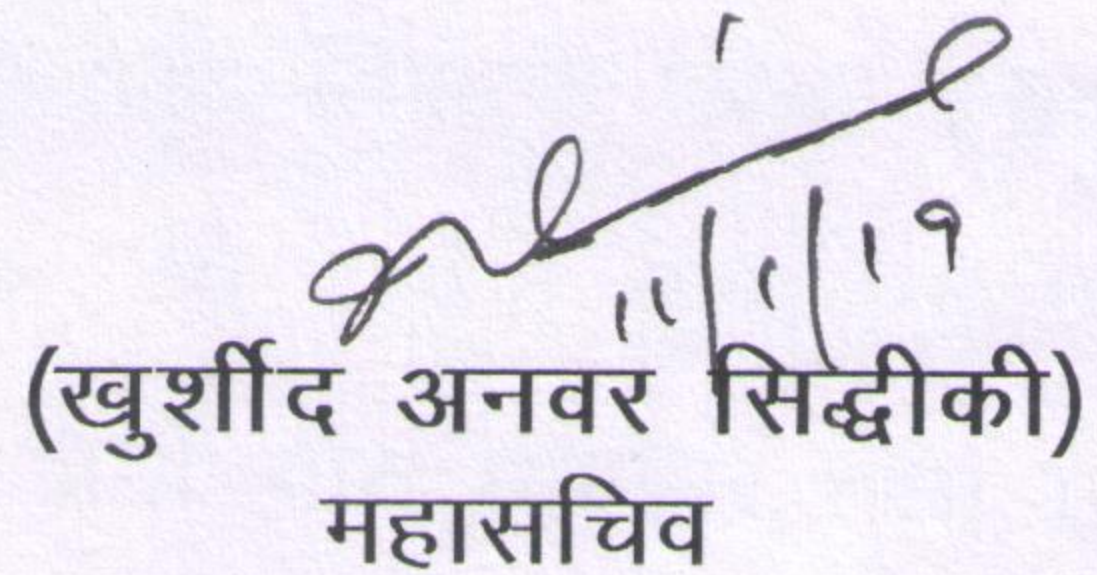 11/1/19
(खुर्शीद अनवर सिद्धीकी)
महासचिव